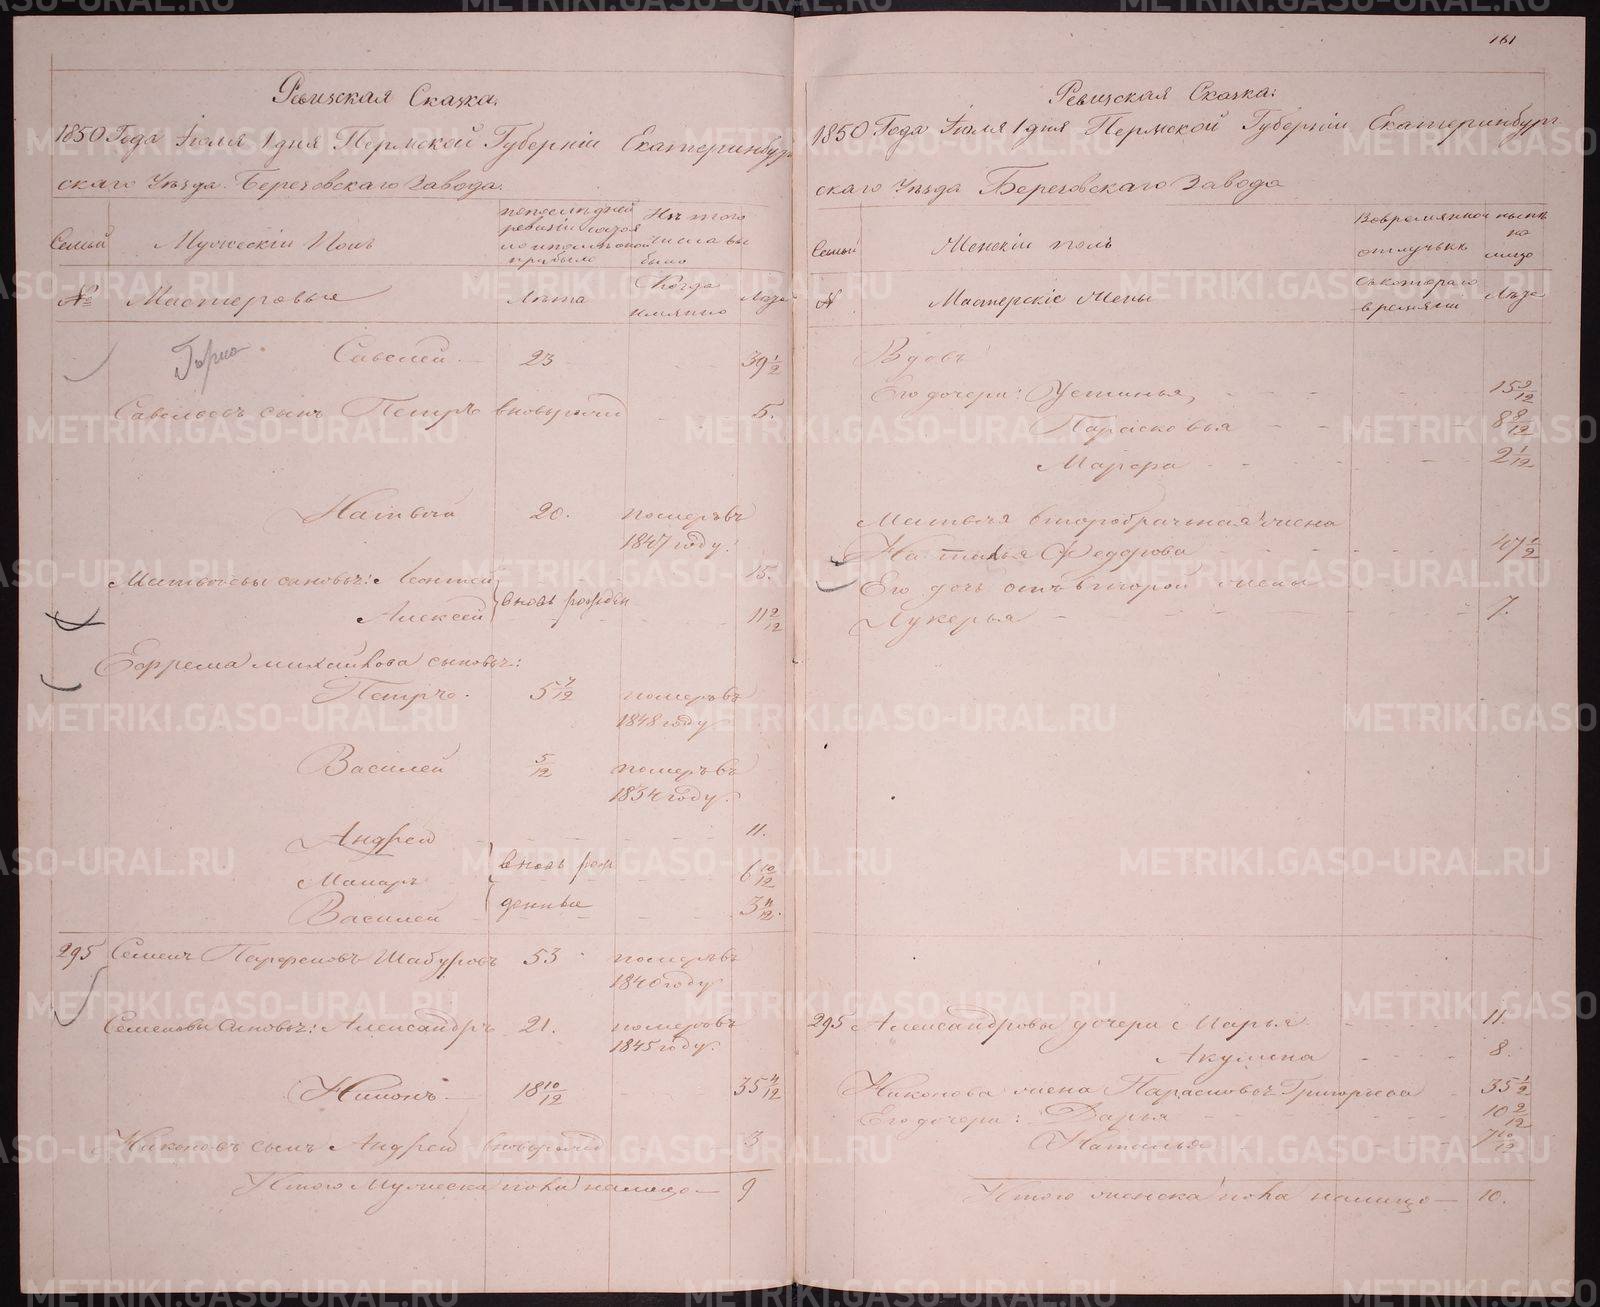 161
Ревизская Сказка.
1850 Года Июля 1 дня Пермской Губернiи Екатеринбург
скаго Уѣзда Березовскаго Завода.
Семьи
Мужескiй Полъ
Изъ того
числа вы
было
№
Мастеровые
Лѣта
Когда
имянно
Лѣта
Савелей 23 39 1/2
Савельевъ сынъ Петръ вновьрожд 5.
Матвѣй 20. померъ въ
1847 году.
Матвѣевы сыновья: Леонтей 15.
Алексей вновь рожден 11 9/12
Ефрема Михайлова сыновья:
Петръ 5 7/12 померъ въ
1848 году
Василей 5/12 померъ въ
1834 году.
Андрей 11.
вновь рож
Макаръ 6 10/12
Василей денные 3 11/12
295 Семенъ Парфеновъ Шабуровъ 53 померъ въ
1840 году
Семеновы сыновья: Александръ 21. померъ въ
1845 году.
Никонъ 18 10/12 35 4/12
Никоновъ сынъ Андрей вновьрожд 3
Итого Мужеска пола налицо 9
Ревизская Сказка:
1850 Года Июля 1 дня Пермской Губернiи Екатеринбург
скаго Уѣзда Березовскаго Завода
Семьи
Женскiй полъ
Вовременной
отлучкѣ
нынѣ
на
лицо
№
Мастерскiе Жены
Съкотораго
времяни
Лѣта
Его дочери: Устинья, 15 9/12
Парасковья 8 8/12
Марфа 2 1/12
Матвѣя второбрачная жена
Наталья Федорова 47 1/2
Его дочь отъ второй жены
Лукерья 7.
295 Александровы дочери Марья 11.
Акулина 8.
Никонова жена Парасковья Григорьева 35 1/2
Его дочери: Дарья 10 2/12
Наталья 7 10/12
Итого женска пола налицо 10.
METRIKI.GASO-URAL.RU